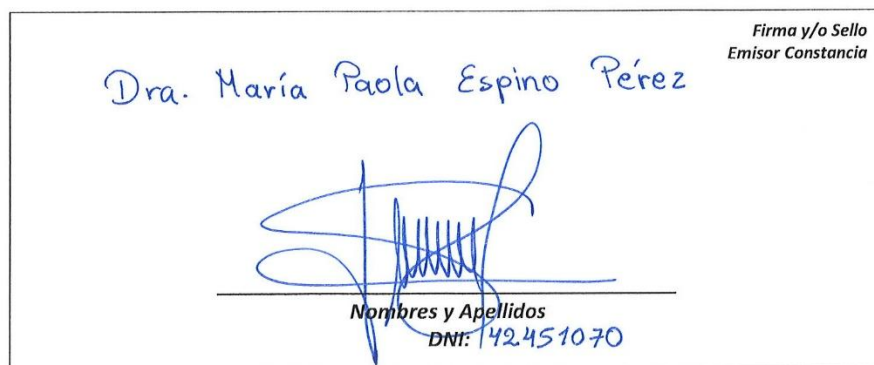 Firma y/o Sello
Emisor Constancia
Dra. María Paola Espino Pérez
Nombres y Apellidos
DNI: 42451070